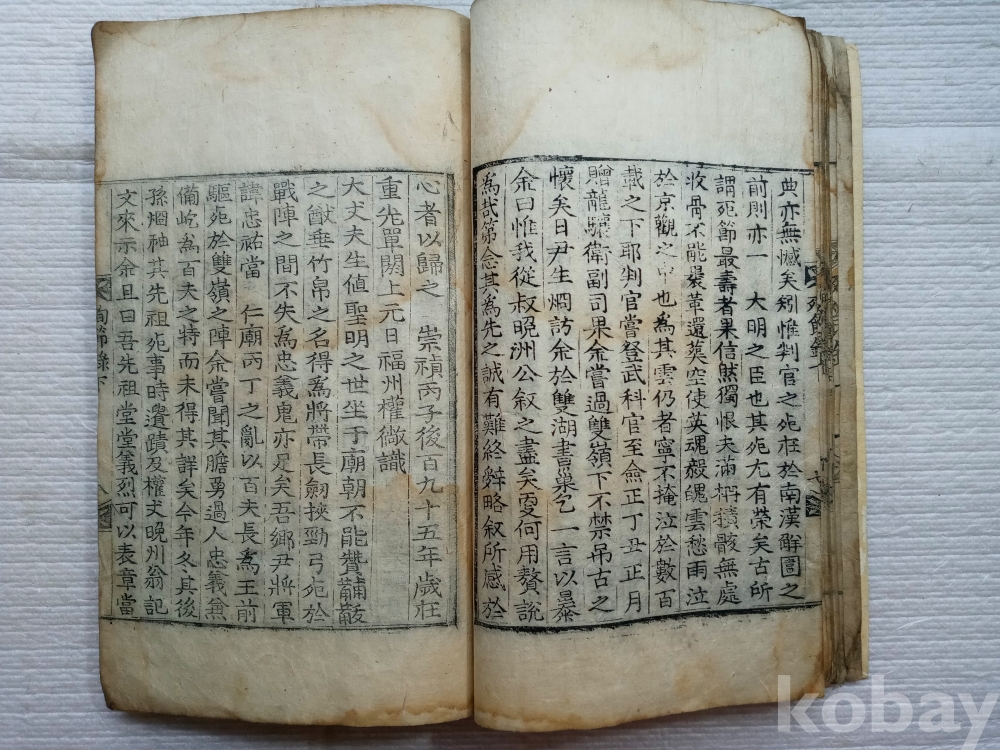 典亦無憾矣矧惟判官之死在於南漢解圍之
前則亦一 大明之臣也其死尤有榮矣古所
謂死節最壽者果信然獨恨夫滿坪積骸無處
收骨不能裹革還葬空使英魂毅魄雲愁雨泣
於京觀之中也爲其雲仍者寧不掩泣於數百
載之下耶判官嘗登武科官至僉正丁丑正月
贈龍驤衛副司果余嘗過雙嶺下不禁吊古之
懷矣日尹生燗訪余於雙湖書巢乞一言以暴
余曰惟我從叔晩洲公叙之盡矣更何用贅說
爲哉第念其爲先之誠有難終辭略叙所感於
心者以歸之 崇禎丙子後百九十五年歲在
重光單閼上元日福州權儆識
大丈夫生値聖明之世坐于廟朝不能贊黼黻
之猷垂竹帛之名得爲將帶長劒挾勁弓死於
戰陣之間不失爲忠義鬼亦足矣吾鄉尹將軍
諱忠祐當 仁廟丙丁之亂以百夫長爲王前
驅死於雙嶺之陣余嘗聞其膽勇過人忠義無
備屹爲百夫之特而未得其詳矣今年冬其後
孫燗袖其先祖死事時遺蹟及權丈晩洲翁記
文來示余且曰吾先祖堂堂義烈可以表章當
殉節錄下
kobay